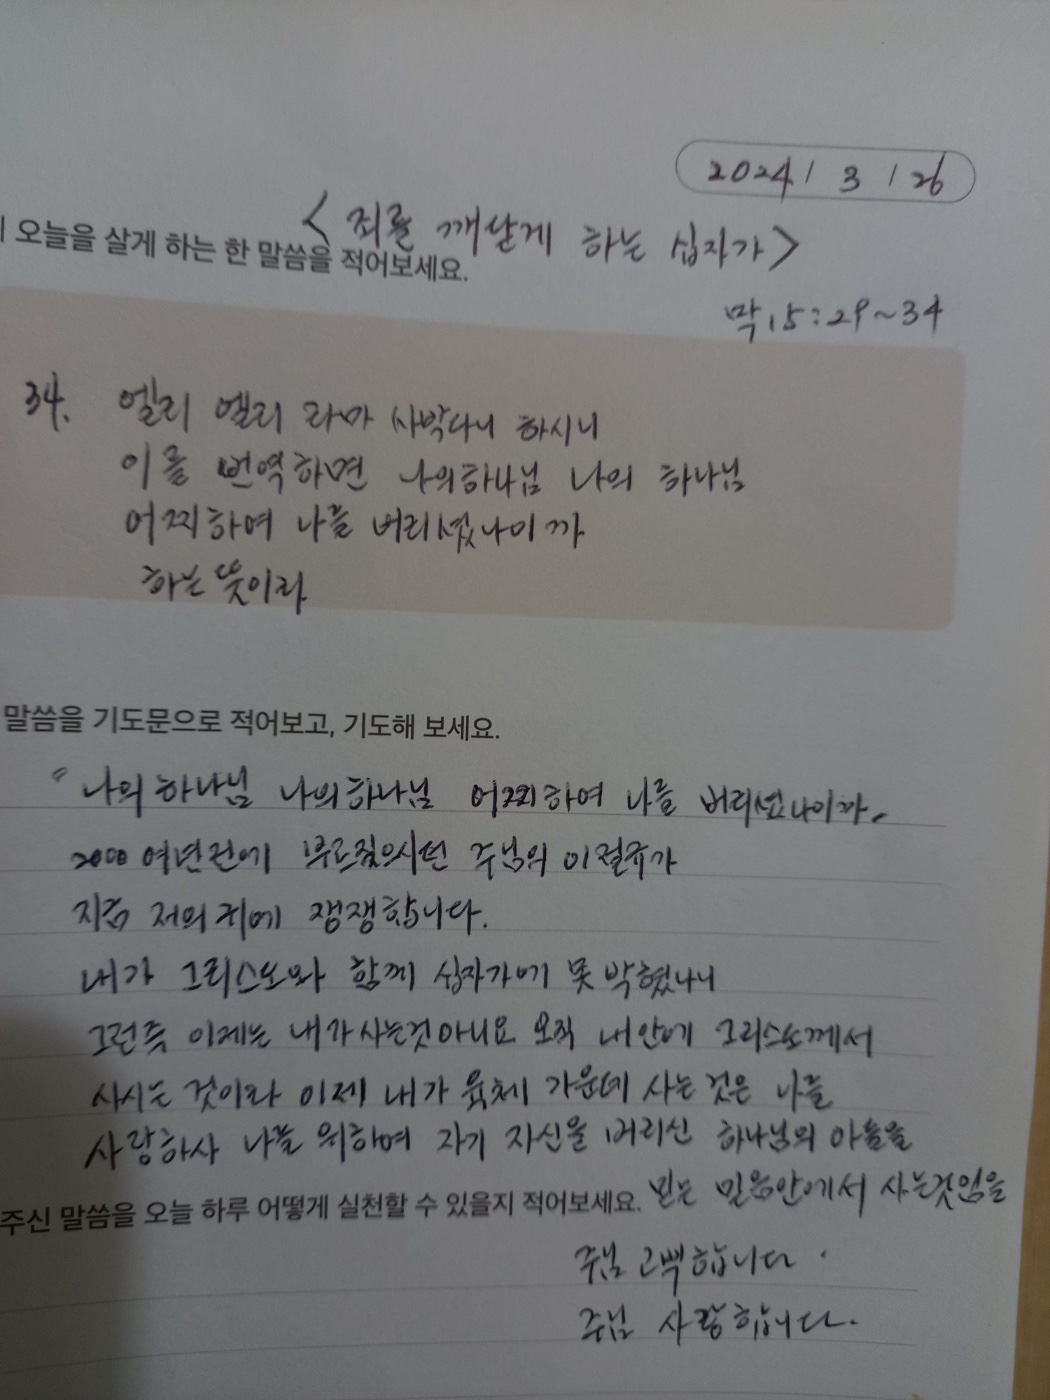 2024 / 3 / 26
<죄를 깨닫게 하는 십자가>
오늘을 살게 하는 한 말씀을 적어보세요.
막 15:29~34
34. 엘리 엘리 라마 사박다니 하시니
이를 번역하면 나의하나님 나의 하나님
어찌하여 나를 버리셨나이까
하는 뜻이라
말씀을 기도문으로 적어보고, 기도해 보세요.
"나의 하나님 나의하나님 어찌하여 나를 버리셨나이까.
2000 여년전에 부르짖으시던 주님의 이 절규가
지금 저의 귀에 쟁쟁합니다.
내가 그리스도와 함께 십자가에 못 박혔나니
그런즉 이제는 내가 사는것 아니요 오직 내 안에 그리스도께서
사시는 것이라 이제 내가 육체 가운데 사는 것은 나를
사랑하사 나를 위하여 자기 자신을 버리신 하나님의 아들을
주신 말씀을 오늘 하루 어떻게 실천할 수 있을지 적어보세요. 믿는 믿음안에서 사는것임을
주님 고백합니다.
주님 사랑합니다.